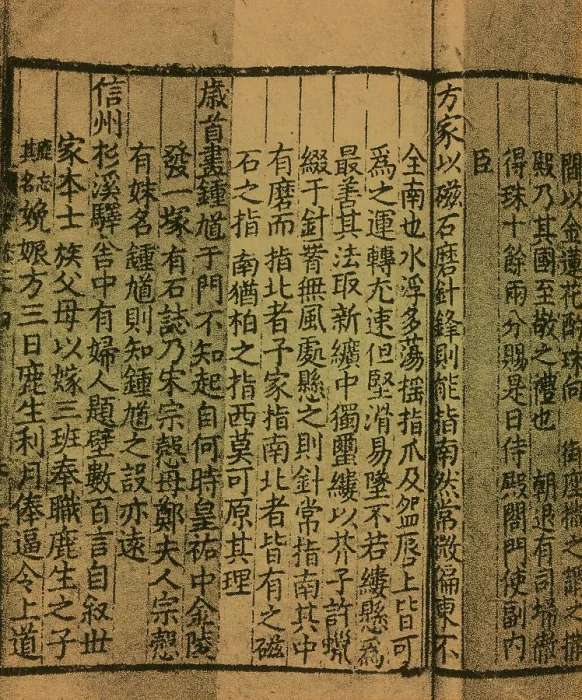 間以金蓮花酌珠向 御座撒之謂之撒
殿乃其國至敬之禮也 朝退有司掃徹
得珠十餘兩分賜是日侍殿閤門使副内
臣
方家以磁石磨針鋒則能指南然常微偏東不
全南也水浮多蕩揺指爪及盌唇上皆可
為之運轉尤速但堅滑易墜不若縷懸為
最善其法取新纊中獨璽縷以芥子許蠟
綴于針菁無風處懸之則針常指南其中
有磨而指北者子家指南北者皆有之磁
石之指南猶柏之指西莫可原其理
歲首畫鍾馗于門不知起自何時皇祐中金陵
發一塚有石誌乃宋宗慤母鄭夫人宗慤
有妹名鍾馗則知鍾馗之設亦遠
信州杉溪驛舍中有婦人題壁數百言自叙世
家本士族父母以嫁三班奉職鹿生之子
鹿忘其名娩娠方三日鹿生利月俸逼令上道